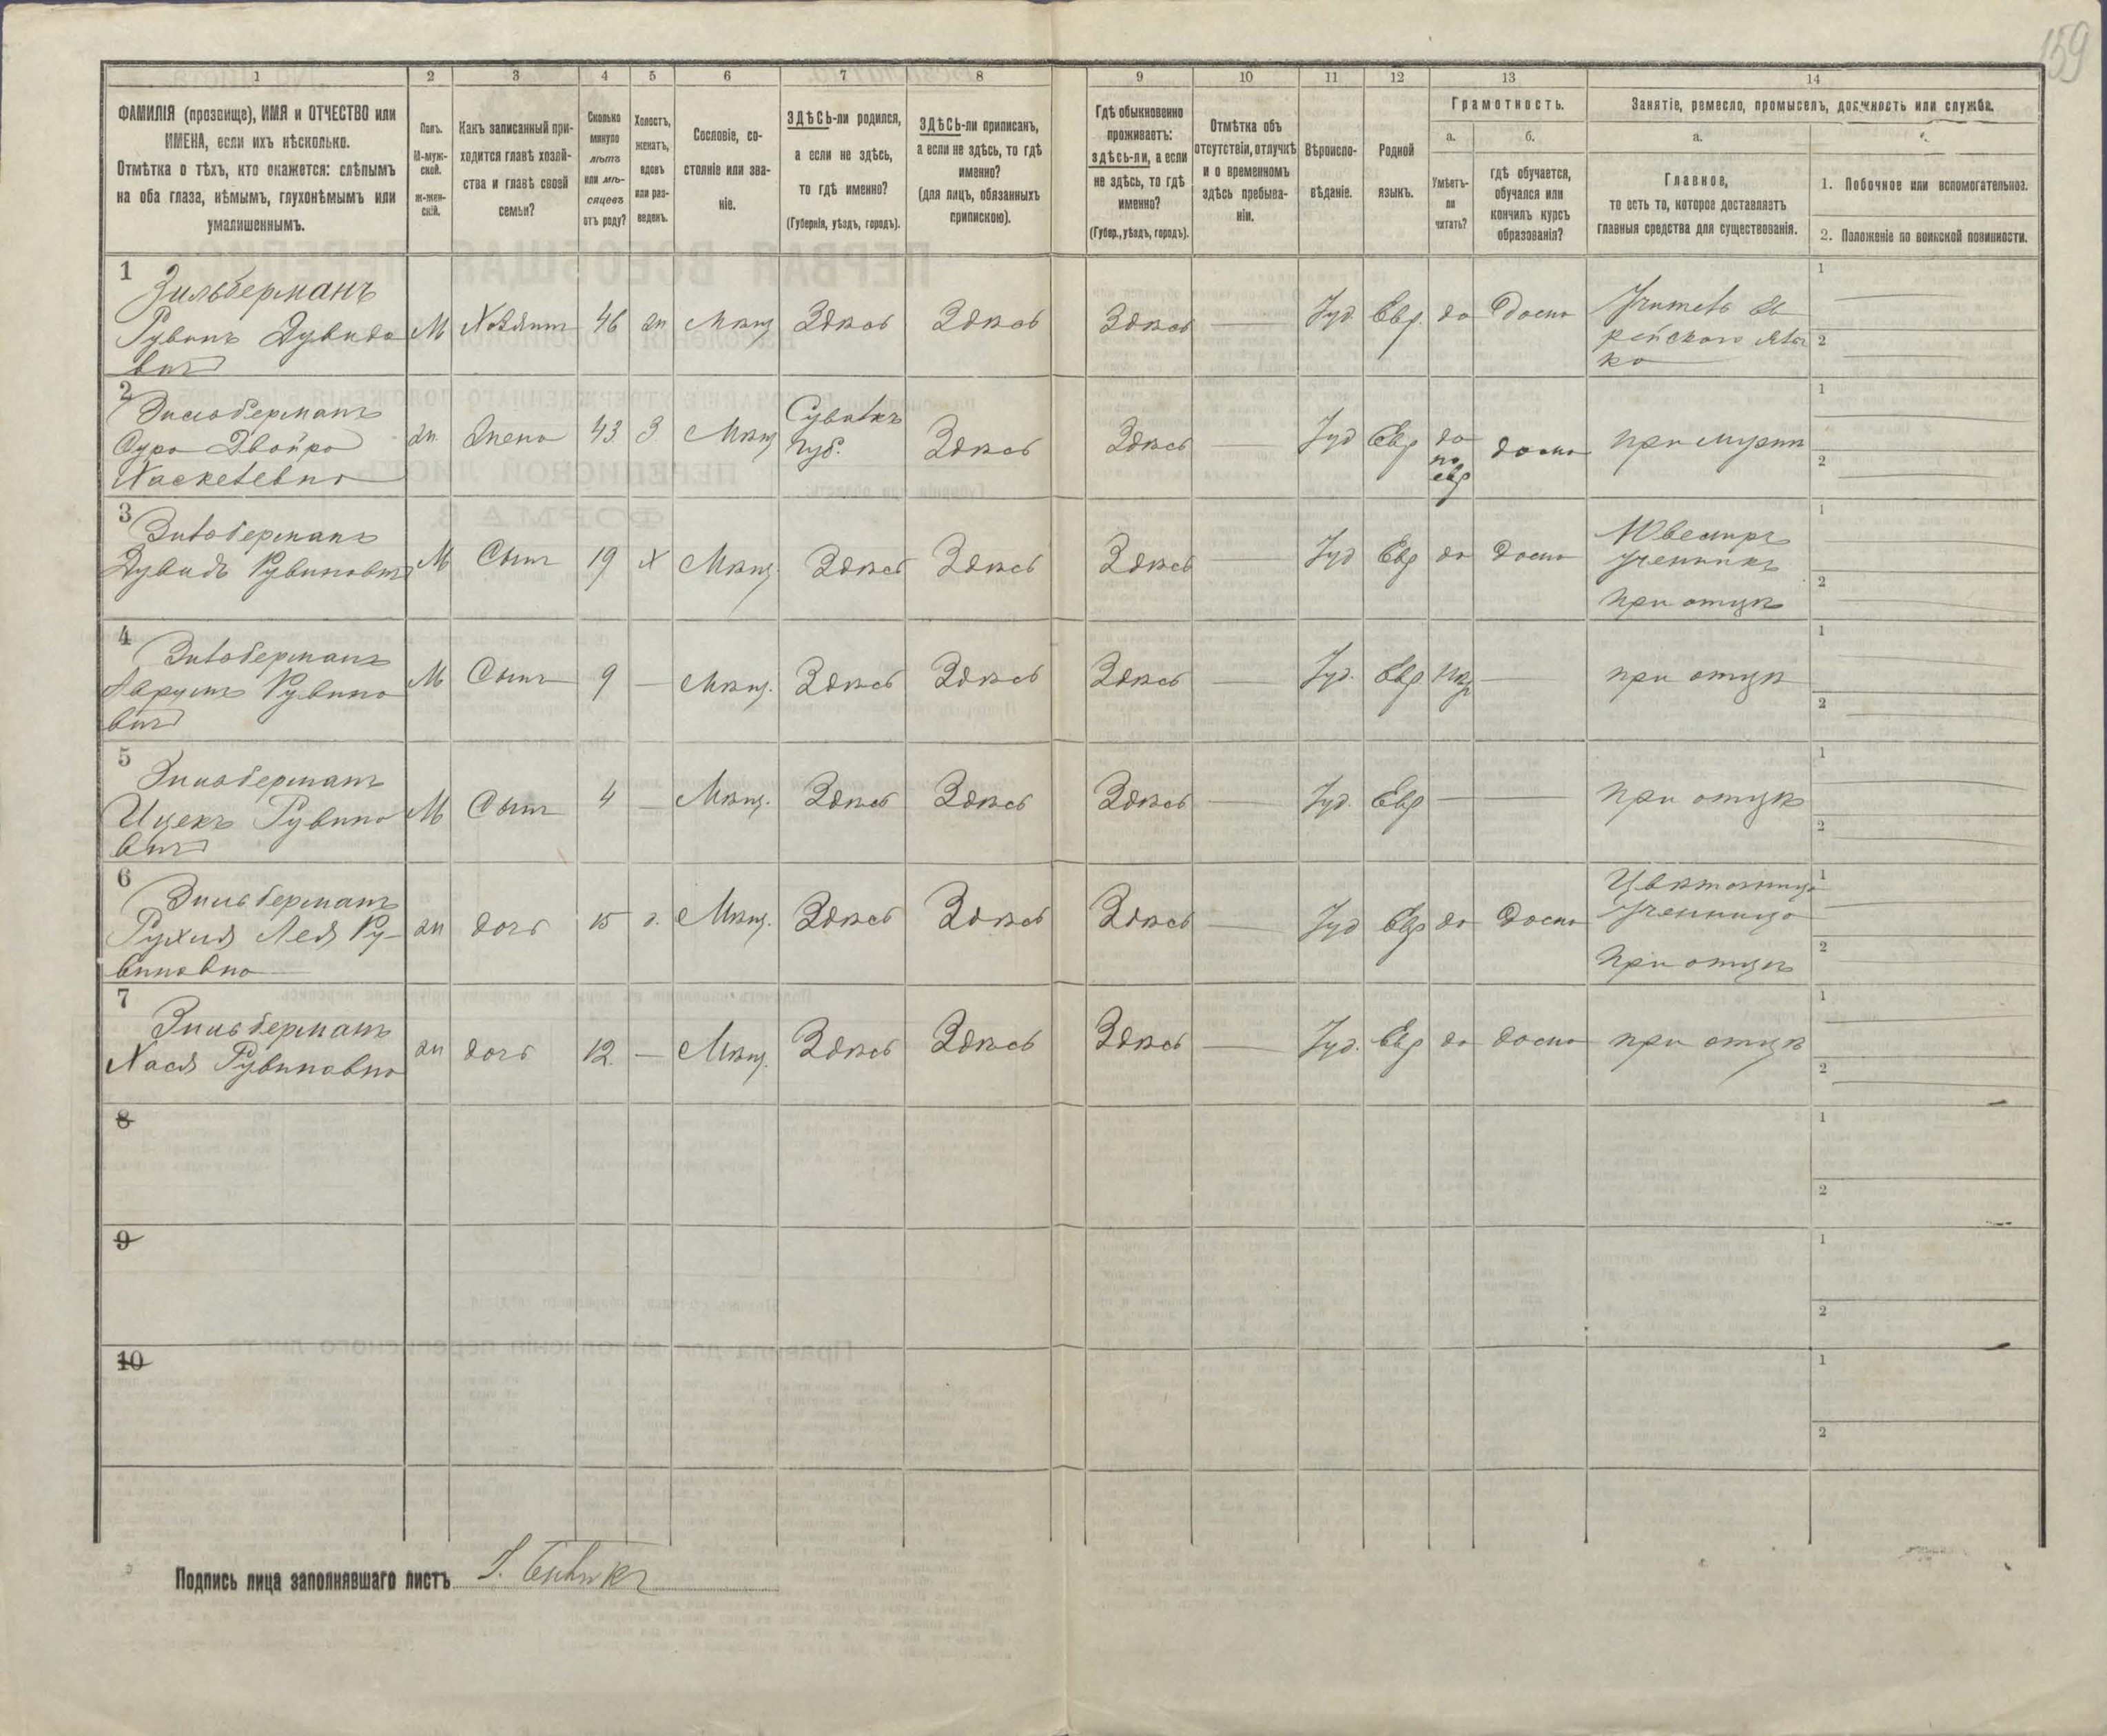 159
1 2 3 4 5 6 7 8 9 10 11 12 13 14
ФАМИЛІЯ (прозвище), ИМЯ и ОТЧЕСТВО или
ИМЕНА, если ихъ нѣсколько.
Отмѣтка о тѣхъ, кто окажется: слѣпымъ
на оба глаза, нѣмымъ, глухонѣмымъ или
умалишеннымъ.
Полъ.
М-муж-
ской.
ж-жен-
скій.
Какъ записанный при-
ходится главѣ хозяй-
ства и главѣ своей
семьи?
Сколько
минуло
лѣтъ
или мѣ-
сяцевъ
отъ роду?
Холостъ,
женатъ,
вдовъ
или раз-
веденъ.
Сословіе, со-
стояніе или зва-
ніе.
ЗДѢСЬ-ли родился,
а если не здѣсь,
то гдѣ именно?
(Губернія, уѣздъ, городъ).
ЗДѢСЬ-ли приписанъ,
а если не здѣсь, то гдѣ
именно?
(для лицъ, обязанныхъ
припискою).
Гдѣ обыкновенно
проживаетъ:
здѣсь-ли, а если
не здѣсь, то гдѣ
именно?
(Губер., уѣздъ, городъ).
Отмѣтка объ
отсутствіи, отлучкѣ
и о временномъ
здѣсь пребыва-
ніи.
Вѣроиспо-
вѣданіе.
Родной
языкъ.
Грамотность.
а.
Умѣетъ-
ли
читать?
б.
гдѣ обучается,
обучался или
кончилъ курсъ
образованія?
Занятіе, ремесло, промыселъ, должность или служба.
а.
Главное,
то есть то, которое доставляетъ
главныя средства для существованія.
1. Побочное или вспомогательное.
2. Положеніе по воинской повинности.
1
Зильберманъ
Рувинъ Дувидо
вич
М Хозяинъ 46 ж Мѣщ Здѣсь Здѣсь Здѣсь — Іуд Евр. да Дома
Учитель ев
рейского язы
ка
1
2
2
Зильберманъ
Сура Двойра
Хаскелевна
ж. жена 43 З Мѣщ
Сувалкъ
Губ.
Здѣсь Здѣсь — Іуд Евр да
по
евр
дома при мужѣ
1
2
3
Зильберманъ
Дувидъ Рувиновичъ
М Сынъ 19 х Мѣщ. Здѣсь Здѣсь Здѣсь — Іуд Евр да Дома
Ювелиръ
ученикъ
при отцѣ
1
2
4
Зильберманъ
Рувино
вич
М Сынъ 9 — Мѣщ. Здѣсь Здѣсь Здѣсь — Іуд. Евр — при отцѣ
1
2
5
Зильберманъ
Ицекъ Рувино
вич
М Сынъ 4 — Мѣщ. Здѣсь Здѣсь Здѣсь — Іуд. Евр — — при отцѣ
1
2
6
Зильберманъ
Рухля Лея Ру-
виновна
ж дочь 15 Мѣщ. Здѣсь Здѣсь Здѣсь — Іуд Евр да Дома
Цвѣточница
ученница
при отцѣ
1
2
7
Зильберманъ
Хася Рувиновна
ж дочь 12 — Мѣщ. Здѣсь Здѣсь Здѣсь — Іуд. Евр да дома при отцѣ
1
2
8
1
2
9
1
2
10
1
2
Подпись лица заполнявшаго листъ